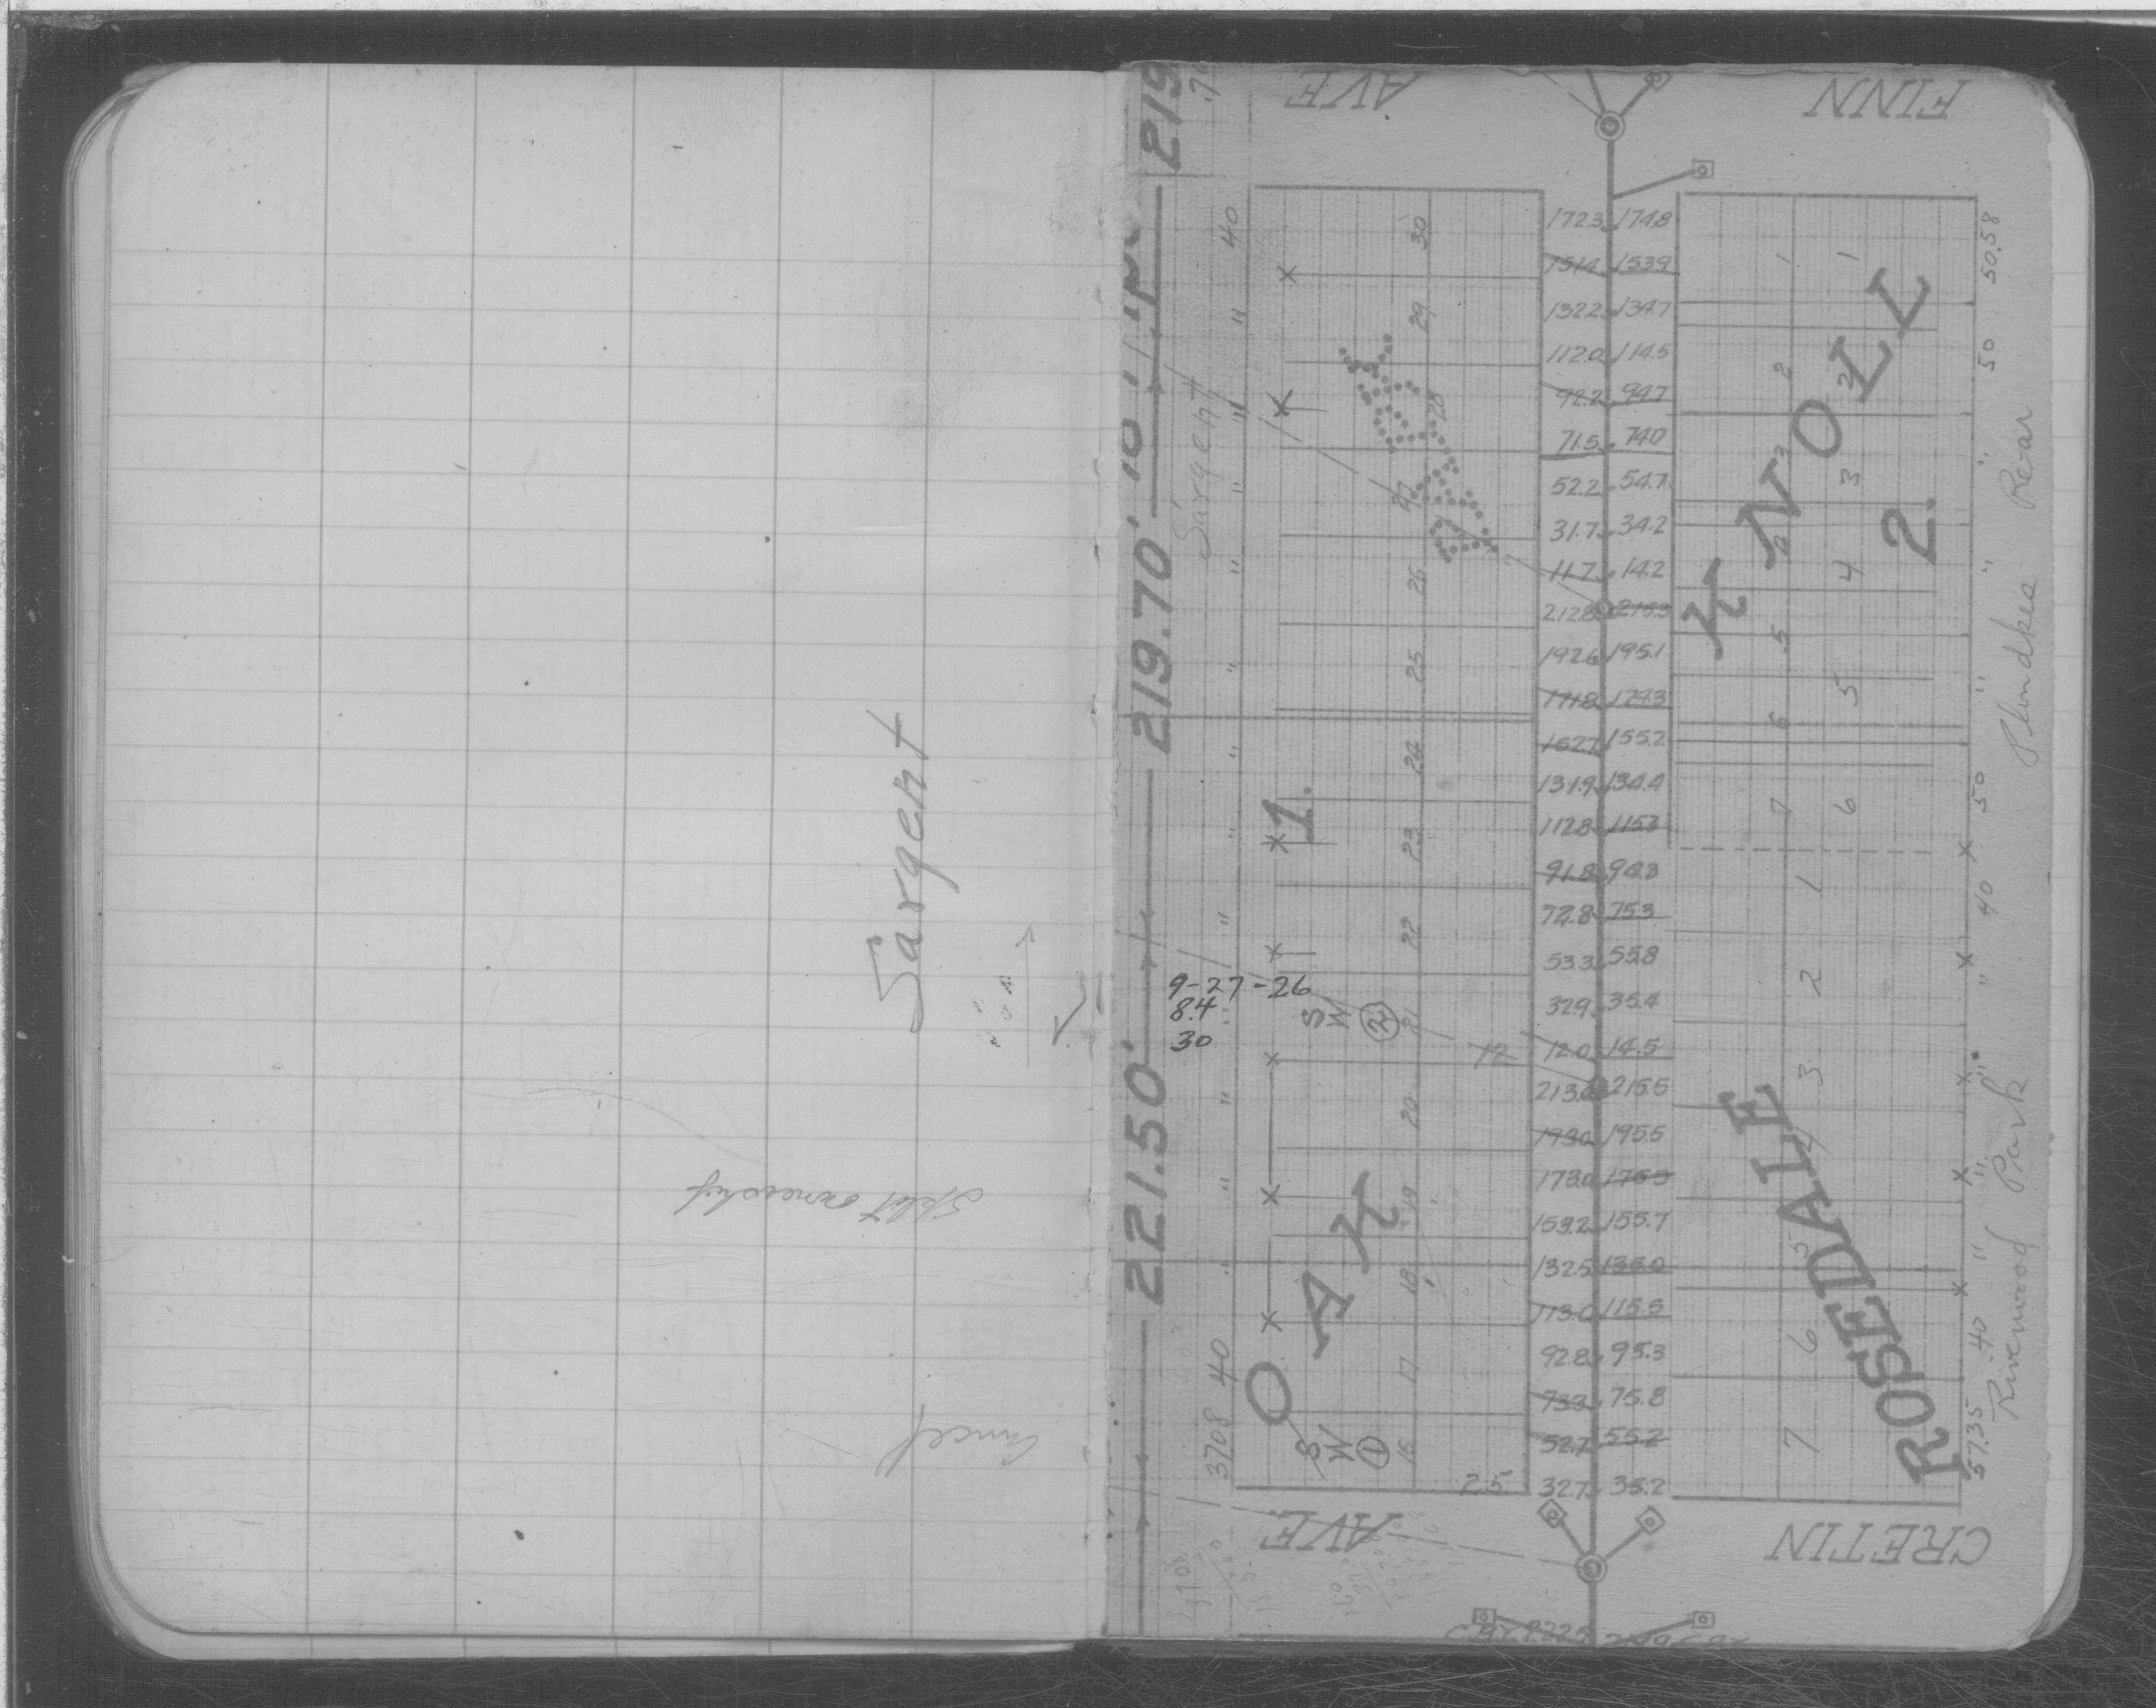 Sargent
Split ownership
219
219.70'
221.50'
Sargent
40
"
"
"
"
"
"
"
"
"
"
"
40
37.08
9-27-26
8.4
30
AVE
FINN
30
29
28
27
26
25
24
23
22
21
20
19
18
17
16
S
W
2
S
W
1
12
25
OAK
1.
172.3 174.8
151.4 153.9
132.2 134.7
112.0 114.5
92.2 94.7
71.5 74.0
52.2 54.7
31.7 34.2
11.7 14.2
212.8 215.3
192.6 195.1
171.8 174.3
152.7 155.2
131.9 134.4
112.8 115.3
91.8 94.3
72.8 75.3
53.3 55.8
32.9 35.4
12.0 14.5
213.0 215.5
193.0 195.5
173.0 175.5
153.2 155.7
132.5 135.0
113.0 115.5
92.8 95.3
73.3 75.8
52.7 55.2
32.7 35.2
KNOLL
2.
1
2
3
4
5
6
7
1
2
3
4
5
6
1
2
3
4
5
6
7
ROSEDALE
50.58
50
"
"
"
50
40
"
"
"
"
40
57.35
Rear
Riverwood Park
AVE
CRETIN